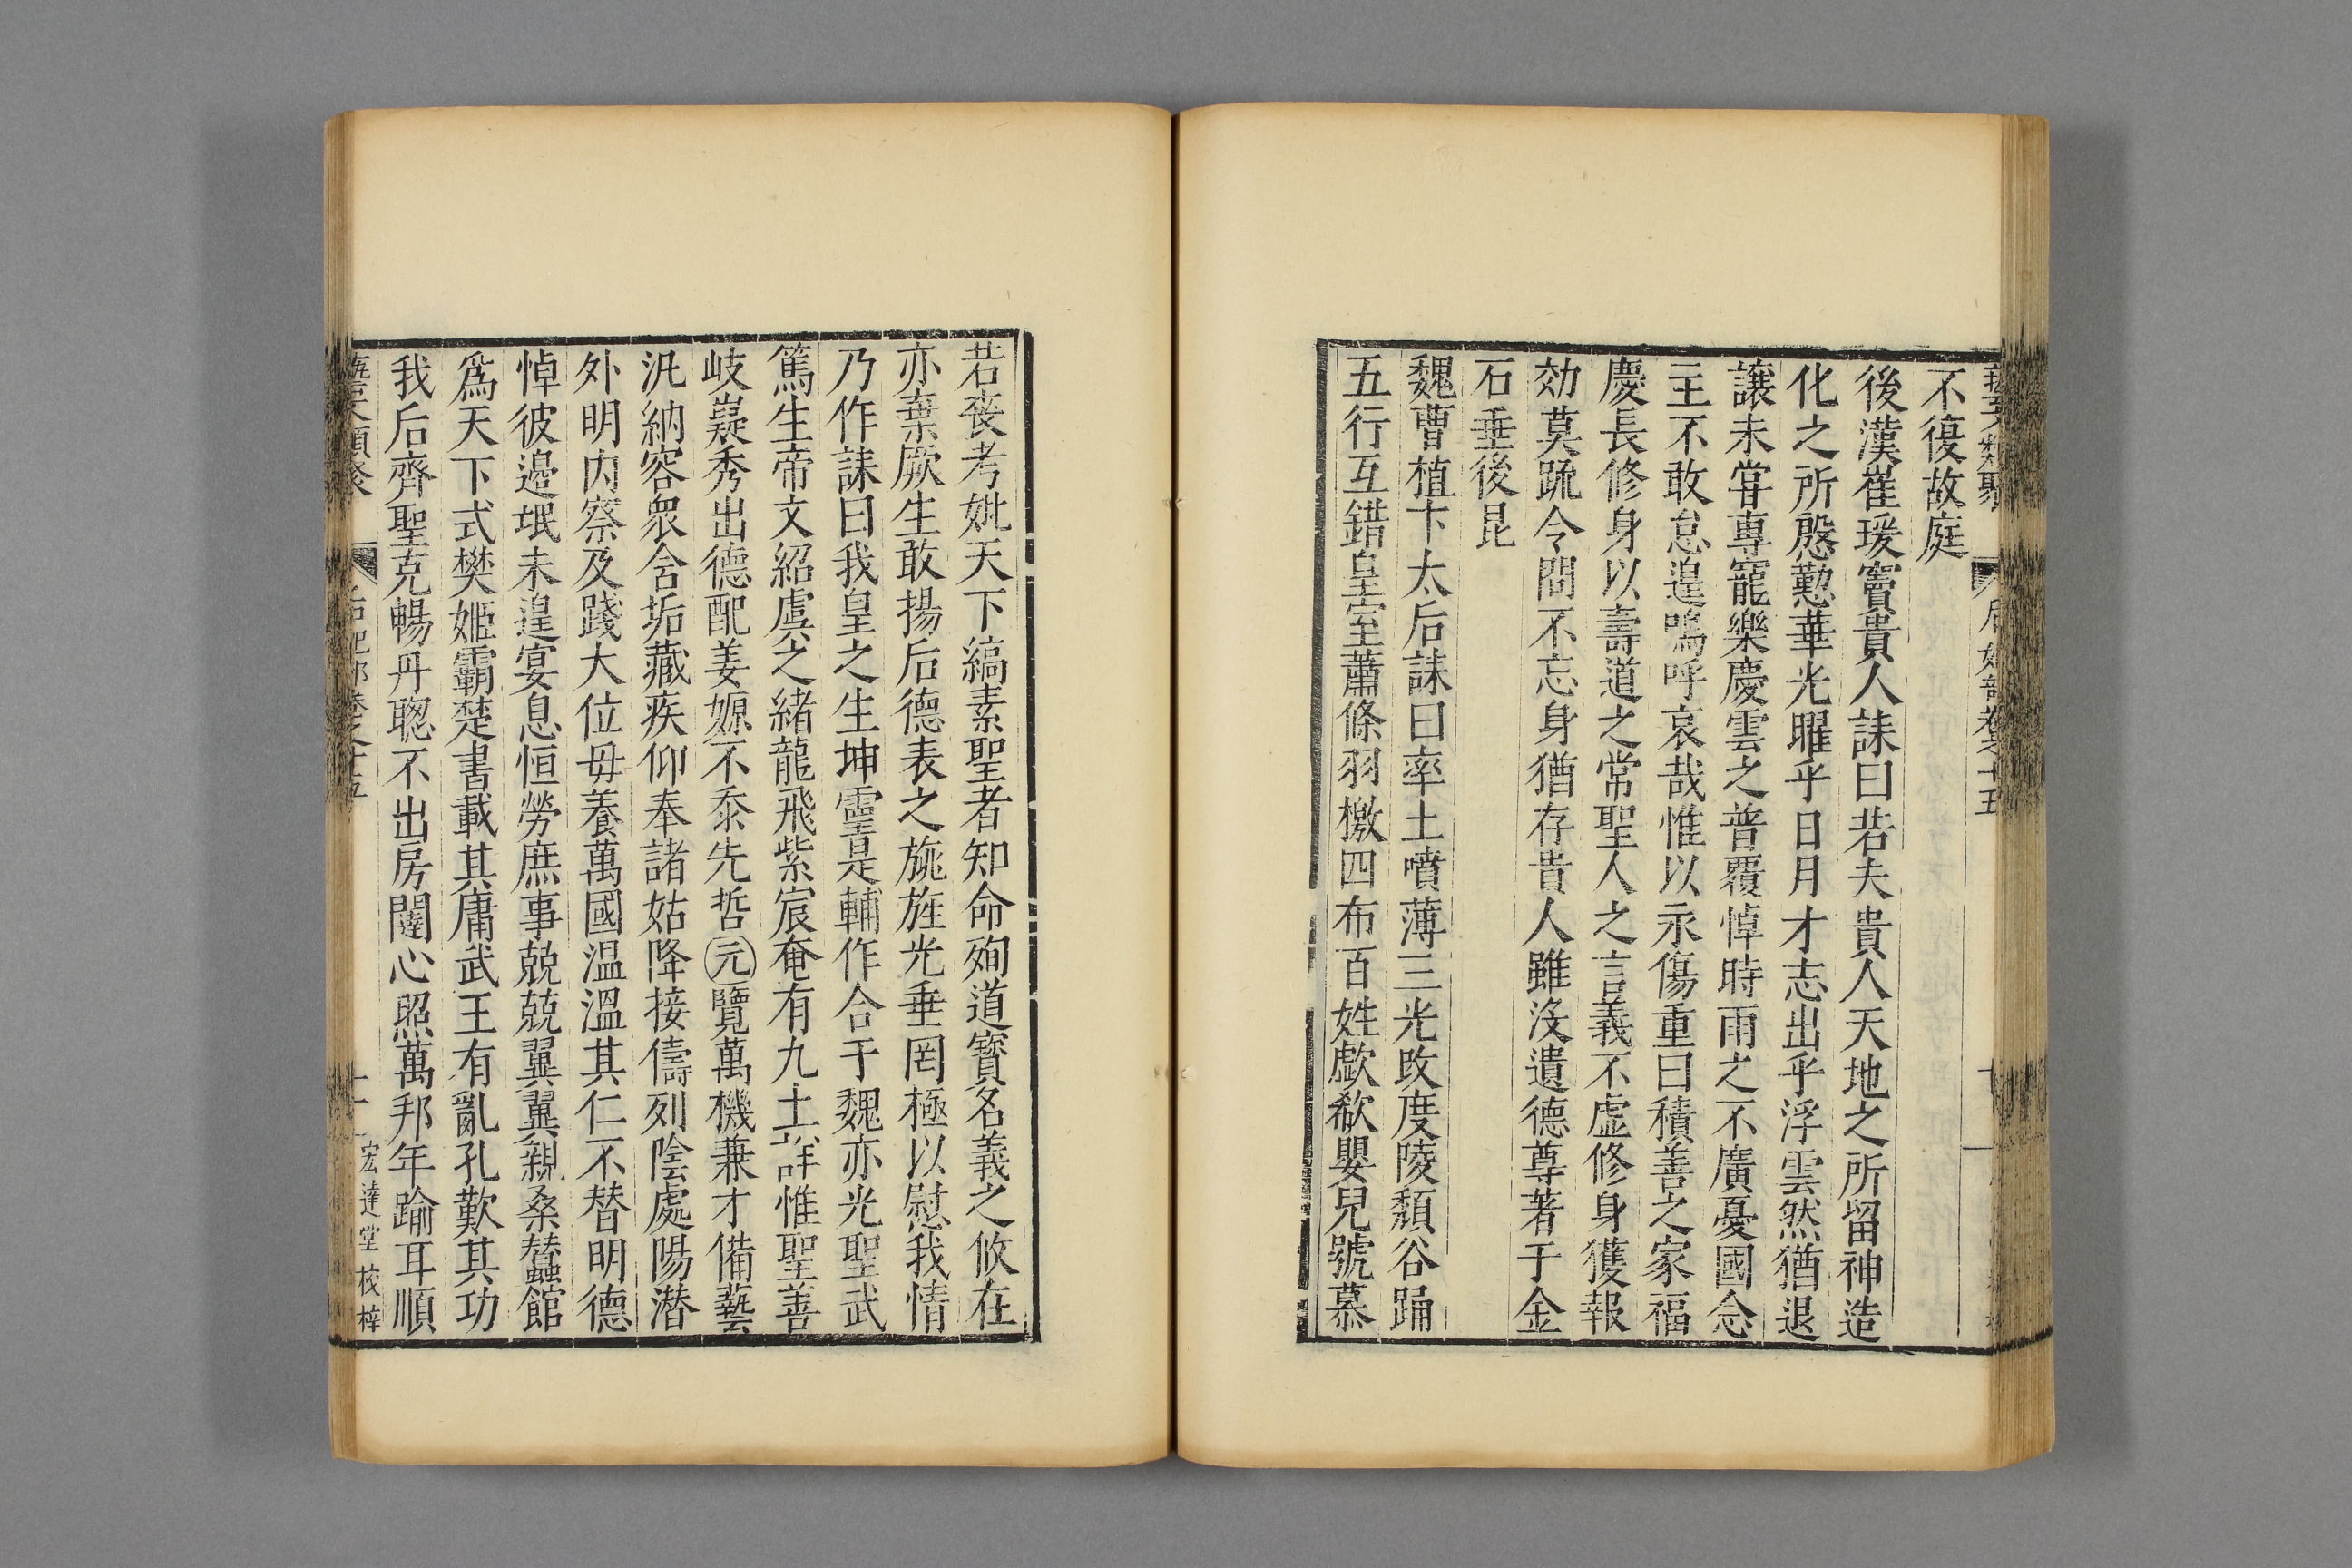 不復故庭
後漢崔瑗竇貴人誄曰若夫貴人天地之所留神造
化之所慇懃華光曜乎日月才志出乎浮雲然猶退
讓未甞專寵樂慶雲之普覆悼時雨之不廣憂國念
主不敢怠遑嗚呼哀哉惟以永傷重曰積善之家福
慶長修身以壽道之常聖人之言義不虛修身獲報
効莫疏令問不忘身猶存貴人雖沒遺德尊著于金
石垂後昆
魏曹植卞太后誄曰率土噴薄三光改度陵頹谷踊
五行互錯皇室蕭條羽檄四布百姓歔欷嬰兒號慕
若喪考妣天下縞素聖者知命殉道寶名義之攸在
亦棄厥生敢揚后德表之旐旌光垂罔極以慰我情
乃作誄曰我皇之生坤靈是輔作合于魏亦光聖武
篤生帝文紹虞之緒龍飛紫宸奄有九土詳惟聖善
岐嶷秀出德配姜嫄不忝先哲元覽萬機兼才備藝
汎納容衆含垢藏疾仰奉諸姑降接儔列陰處陽潛
外明內察及踐大位毋養萬國溫溫其仁不替明德
悼彼邊氓未遑宴息恒勞庶事兢兢翼翼親桑蠶館
爲天下式樊姬霸楚書載其庸武王有亂孔歎其功
我后齊聖克暢丹聰不出房闥心照萬邦年踰耳順
藝文類聚 后妃部卷之十五 十一 宏達堂校梓